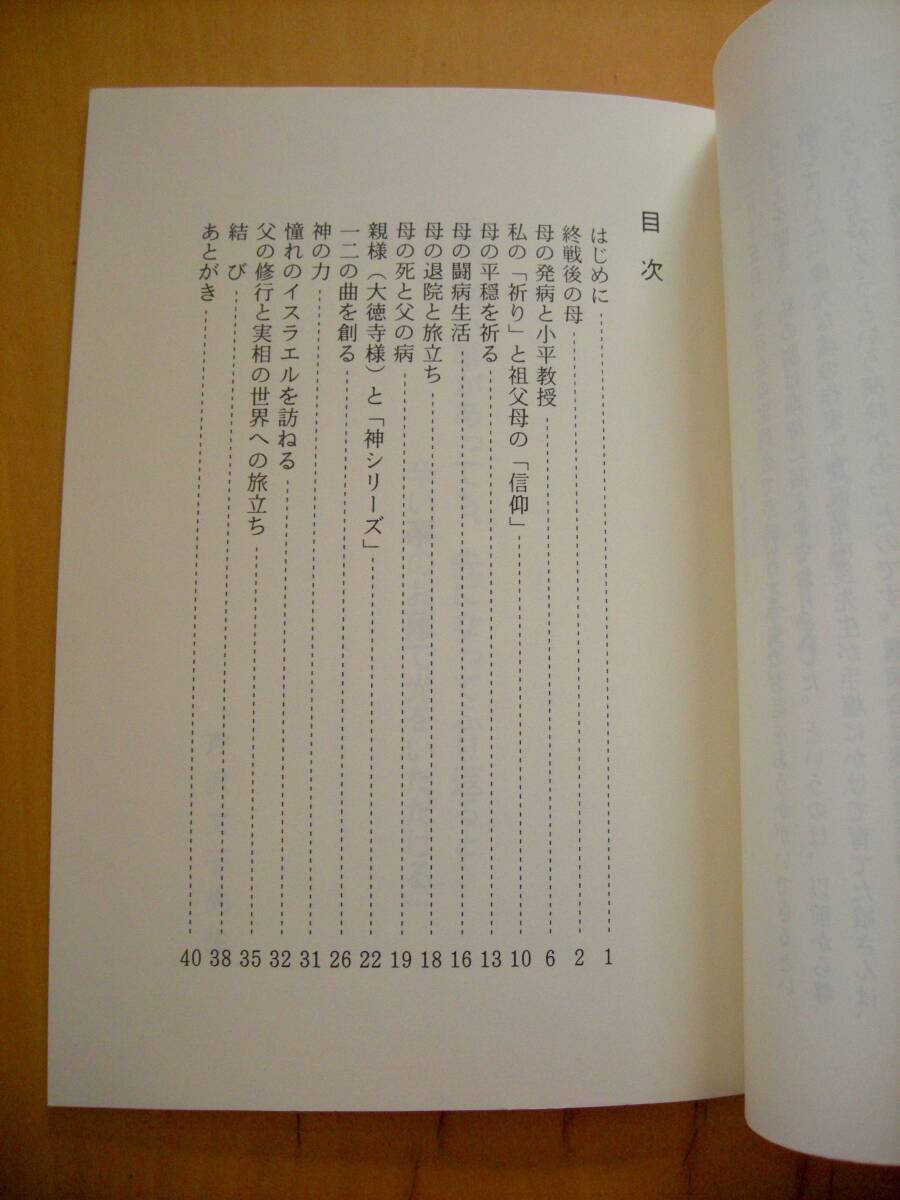 目次
はじめに 1
終戦後の母 2
母の発病と小平教授 6
私の「祈り」と祖父母の「信仰」 10
母の平穏を祈る 13
母の闘病生活 16
母の退院と旅立ち 18
母の死と父の病 19
親様（大徳寺様）と「神シリーズ」 22
一二の曲を創る 26
神の力 31
憧れのイスラエルを訪ねる 32
父の修行と実相の世界への旅立ち 35
結び 38
あとがき 40